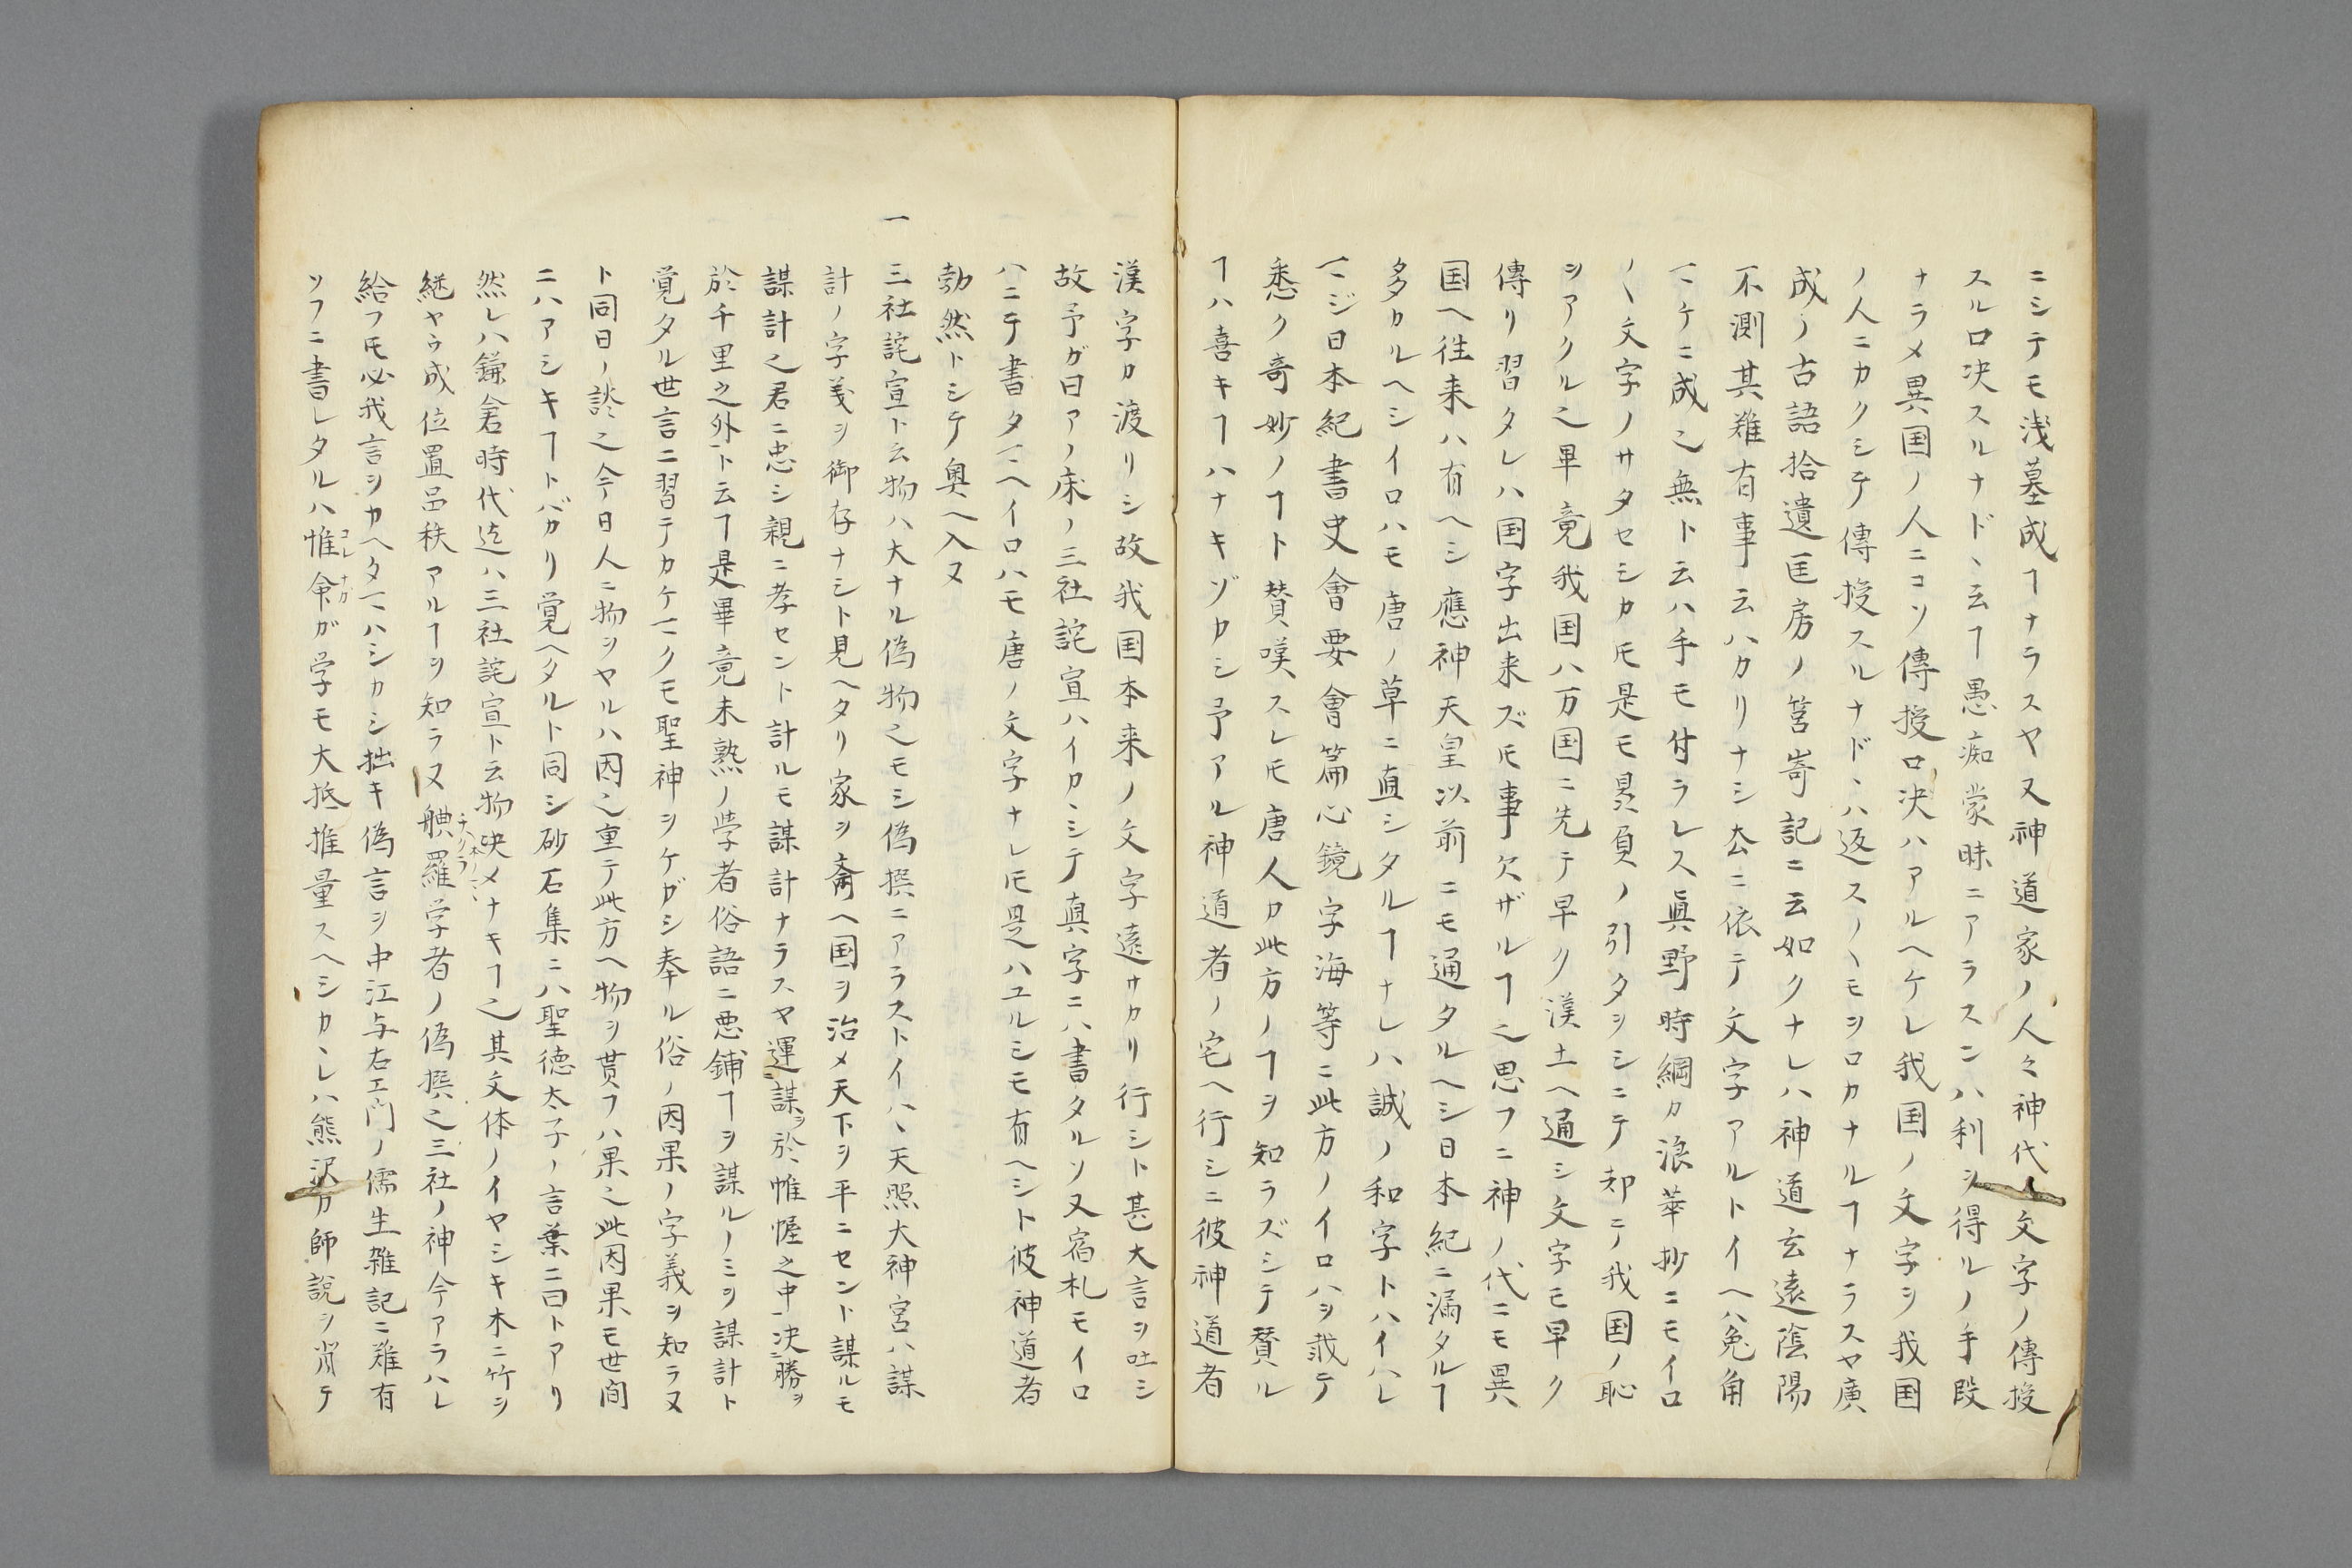 ニシテモ浅墓成ヿナラスヤ又神道家ノ人々神代ノ文字ノ傳授
スル口决スルナドヽ云ヿ愚痴蒙昧ニアラスンハ利ヲ得ルノ手段
ナラメ異国ノ人ニコソ傳授口决ハアルヘケレ我国ノ文字ヲ我国
ノ人ニカクシテ傳授スルナドヽハ返ス〳〵モヲロカナルヿナラスヤ廣
成ノ古語拾遺匡房ノ筥崎記ニ云如クナレハ神道玄遠陰陽
不測其難有事云ハカリナシ厺ニ依テ文字アルトイヘハ兔角
ニケニ成之無ト云ハ手モ付ラレス眞野時綱カ浪華抄ニモイロ
〳〵文字ノサタセシカ𪜈是モ贔負ノ引タヲシニテ却テ我国ノ恥
ヲアクル之畢竟我国ハ万国ニ先テ早ク漢土ヘ通シ文字モ早ク
傳リ習タレハ国字出来ズ𪜈事欠ザルヿ之思フニ神ノ代ニモ異
国ヘ徃来ハ有ヘシ應神天皇以前ニモ通タルヘシ日本紀ニ漏タルヿ
多カルヘシイロハモ唐ノ草ニ直シタルヿナレハ誠ノ和字トハイハレ
マジ日本紀書史會要會篇心鏡字海等ニ此方ノイロハヲ載テ
悉ク奇妙ノヿト賛嘆スレ𪜈唐人カ此方ノヿヲ知ラズシテ賛ル
ヿハ喜キヿハナキゾカシ予アル神道者ノ宅ヘ行シニ彼神道者
漢字カ渡リシ故我国本来ノ文字遠サカリ行シト甚大言ヲ吐シ
故予ガ曰アノ床ノ三社詫宣ハイカヽシテ眞字ニハ書タルソ又宿札モイロ
ハニテ書タマヘイロハモ唐ノ文字ナレ𪜈是ハユルシモ有ヘシト彼神道者
勃然トシテ奥ヘ入ヌ
一 三社詫宣ト云物ハ大ナル偽物之モシ偽撰ニアラストイハヽ天照大神宮ハ謀
計ノ字義ヲ御存ナシト見ヘタリ家ヲ斎ヘ国ヲ治メ天下ヲ平ニセント謀ルモ
謀計之君ニ忠シ親ニ孝セント計ルモ謀計ナラスヤ運謀ヲ於帷幄之中决勝ヲ
於千里之外ト云ヿ是畢竟未熟ノ學者俗語ニ悪鋪ヿヲ謀ルノミヲ謀計ト
覚タル世言ニ習テカケマクモ聖神ヲケガシ奉ル俗ノ因果ノ字義ヲ知ラヌ
ト同日ノ談之今日人ニ物ヲヤルハ因之重テ此方ヘ物ヲ貰フハ果之此因果モ世間
ニハアシキヿトバカリ覚ヘタルト同シ砂石集ニハ聖徳太子ノ言葉ニ曰トアリ
然レハ鎌倉時代迄ハ三社詫宣ト云物决メナキヿ之其文体ノイヤシキ木ニ竹ヲ
継ヤウ成位置品秩アルヿヲ知ラヌ 羅学者ノ偽撰之三社ノ神今アラハレ
給フ𪜈必我言ヲカヘタマハシカシ拙キ偽言ヲ中江与右エ門ノ儒生雑記ニ難有
ソフニ書レタルハ惟命ガ学モ大抵推量スヘシカヽレハ熊沢カ師説ヲ背テ